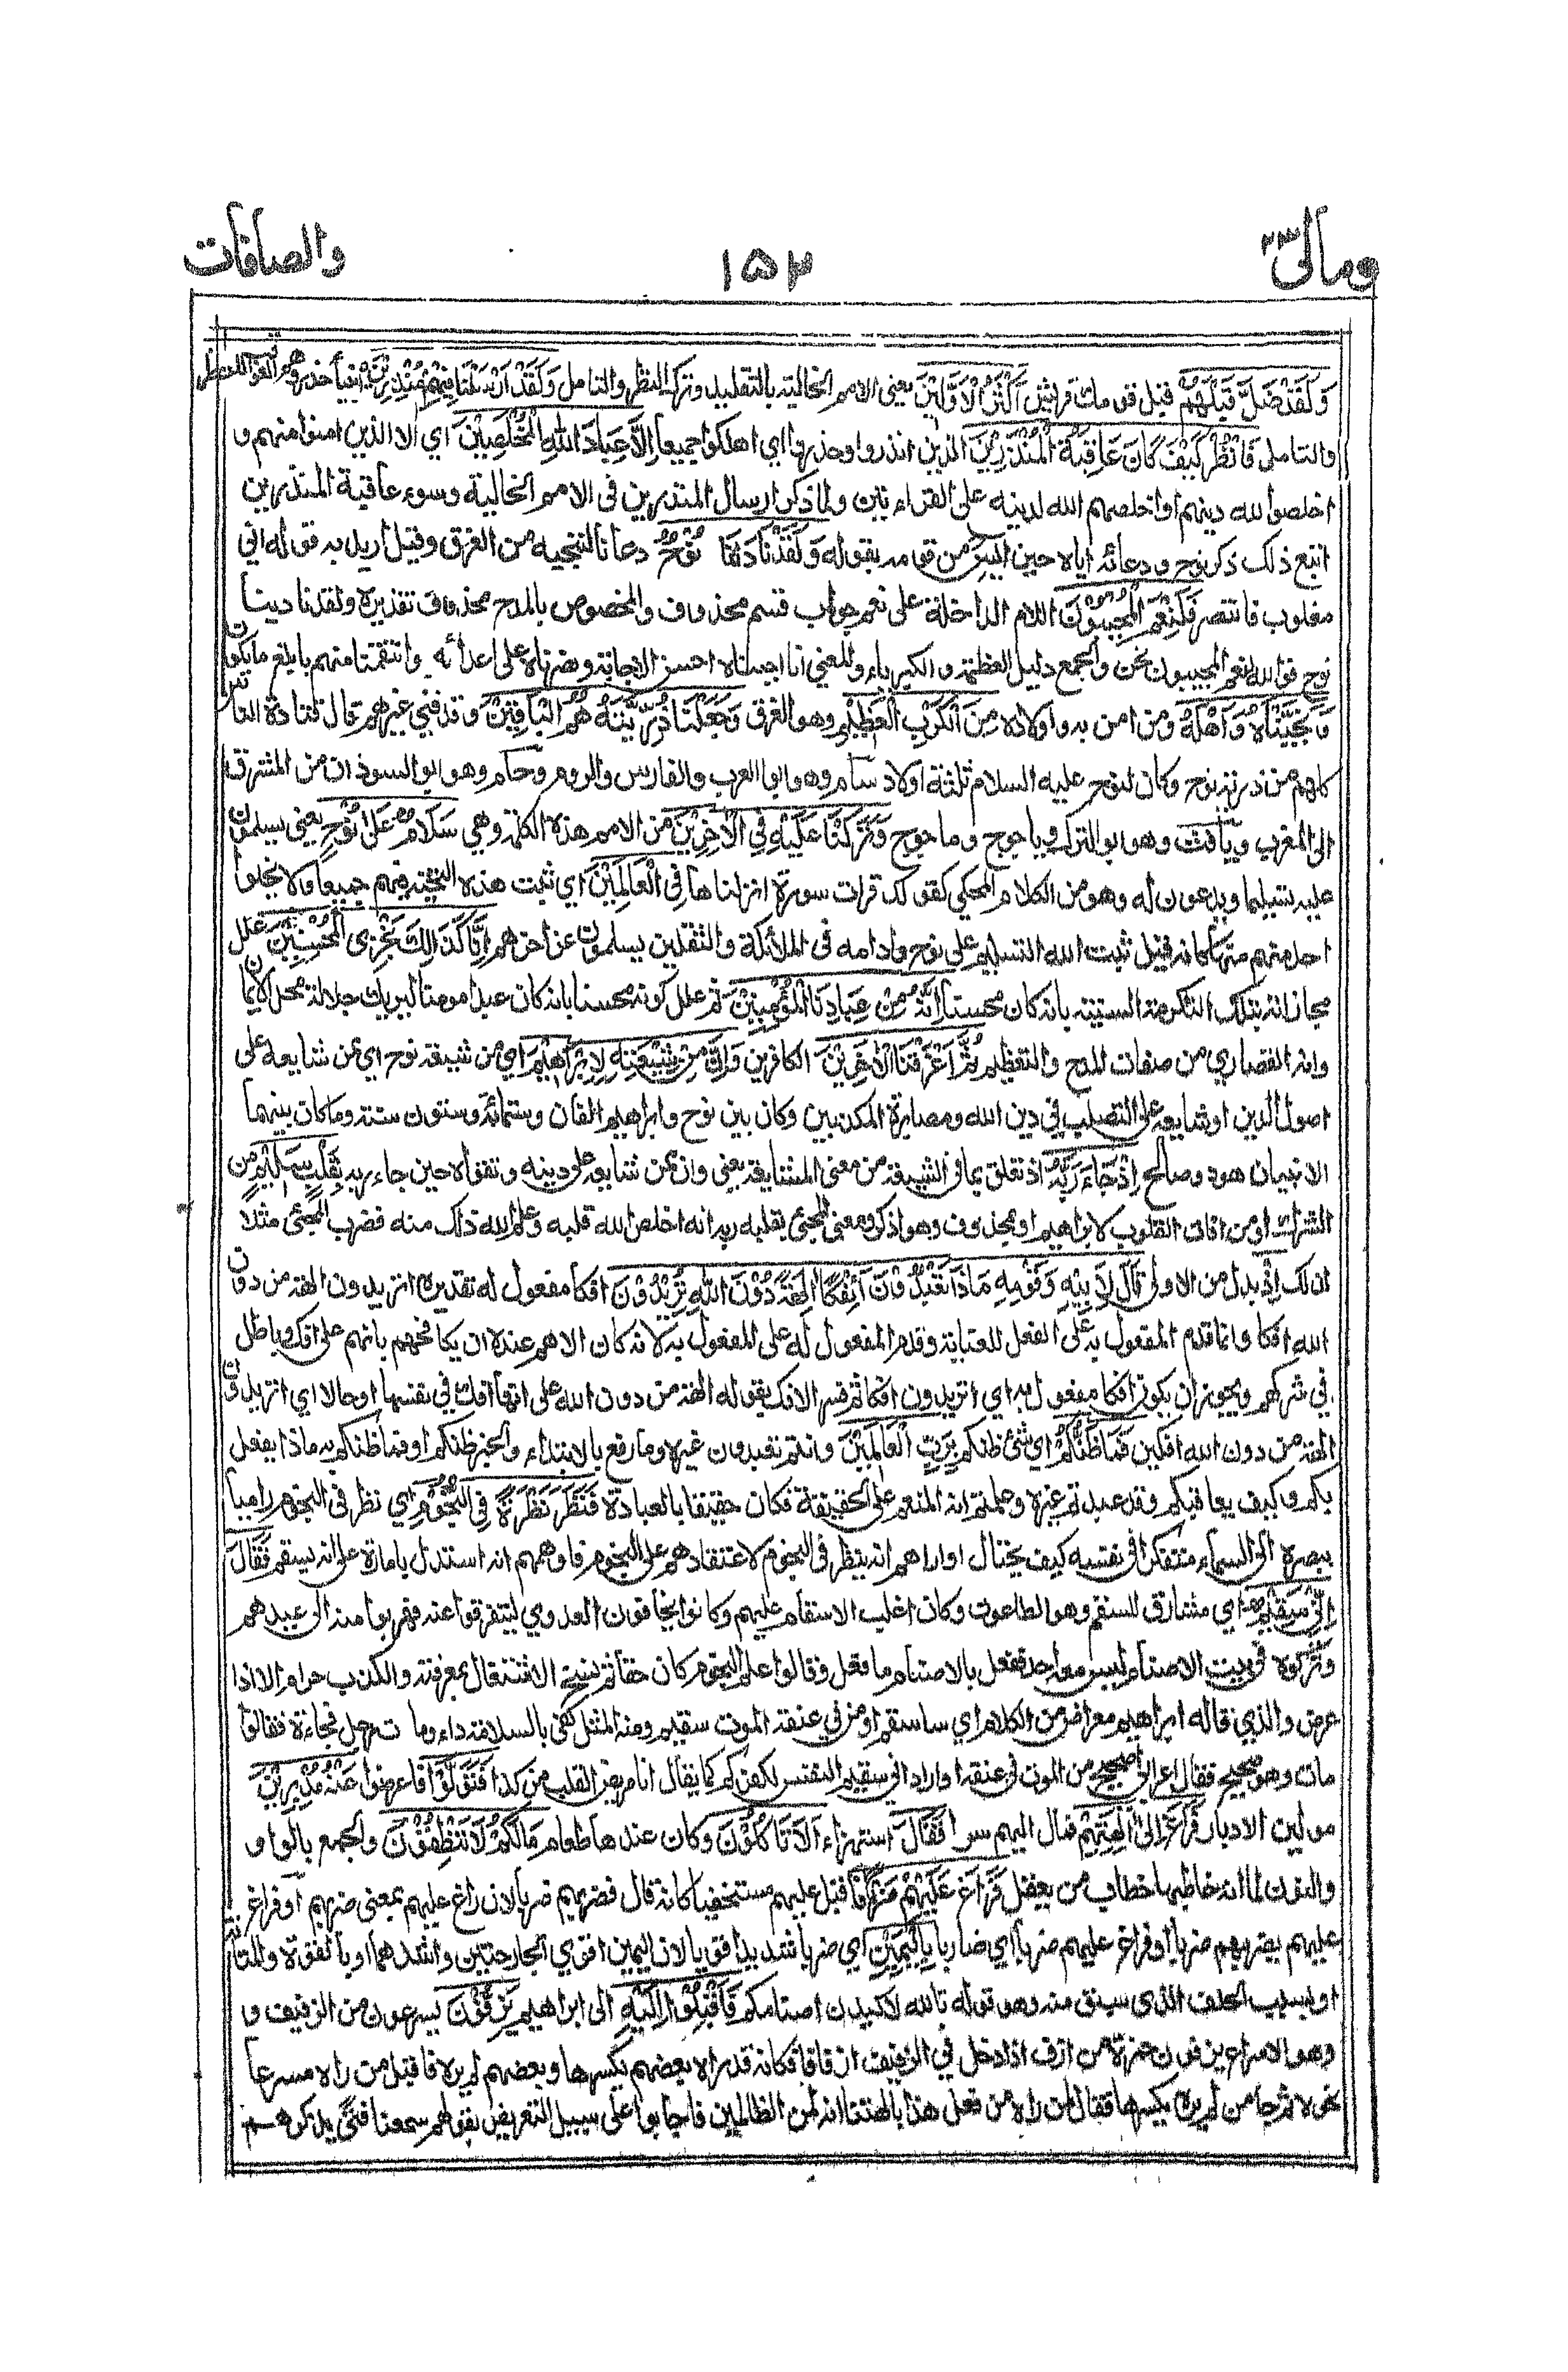 ومالى ٢٣
١٥٢
والصافات
وَلَقَدْ ضَلَّ قَبْلَهُمْ قبل قومك قريش اَكْثَرُ الْاَوَّلِيْنَ يعني الامم الخالية بالتقليد وترك النظر والتامل وَلَقَدْ اَرْسَلْنَا فِيْهِمْ مُنْذِرِيْنَ انبيأ حذروهم العواقب
والتامل فَانْظُرْ كَيْفَ كَانَ عَاقِبَةُ الْمُنْذَرِيْنَ الذين انذروا وحذروا اي اهلكوا جميعا اِلَّا عِبَادَ اللهِ الْمُخْلَصِيْنَ اي الا الذين امنوا منهم و
اخلصوا لله دينهم او اخلصهم الله لدينه على القراءتين ولما ذكر ارسال المنذرين فى الامم الخالية وسوء عاقبة المنذرين
اتبع ذلك ذكر نوح ودعائه اياه حين ايس من قومه بقوله وَلَقَدْ نَادٰىنَا نُوْحٌ دعانا لننجيه من الغرق وقيل اريد به قوله انى
مغلوب فانتصر فَلَنِعْمَ الْمُجِيْبُوْنَ اللام الداخلة على نعم جواب قسم محذوف والمخصوص بالمدح محذوف تقديره ولقد نادينا
نوح فوالله لنعم المجيبون نحن والجمع دليل العظمة والكبرياء والمعني انا اجبناه احسن الاجابة ونصرناه على اعدائه وانتقمنا منهم بابلغ مايكون
وَنَجَّيْنَاهُ وَاَهْلَهُ ومن امن به واولاده مِنَ الْكَرْبِ الْعَظِيْمِ وهو الغرق وَجَعَلْنَا ذُرِّيَّتَهُ هُمُ الْبَاقِيْنَ وقد فني غيرهم قال قتادة الناس
كلهم من ذرية نوح وكان لنوح عليه السلام ثلثة اولاد سام وهو ابوا العرب والفارس والروم وحام وهو ابو السودان من المشرق
الى المغرب ويافث وهو ابو الترك وياجوج وماجوج وَتَرَكْنَا عَلَيْهِ فِي الْاٰخِرِيْنَ من الامم هذه الكلمة وهي سَلَامٌ عَلٰى نُوْحٍ يعني يسلمون
عليه تسليما ويدعون له وهو من الكلام المحكي كقولك قرات سورة انزلناها فِي الْعَالَمِيْنَ اي ثبت هذه التحية فيهم جميعا ولا يخلوا
احد منهم منها كانه قيل ثبت الله التسليم على نوح وادامه فى الملائكة والثقلين يسلمون عن اخرهم اِنَّا كَذٰلِكَ نَجْزِى الْمُحْسِنِيْنَ علل
مجازاته بتلك التكرمة السنية بانه كان محسنا اِنَّهُ مِنْ عِبَادِنَا الْمُؤْمِنِيْنَ ثم علل كونه محسنا بانه كان عبدا مومنا ليريك جلالة محل الايمان
وانه القصارى من صفات المدح والتعظيم ثُمَّ اَغْرَقْنَا الْاٰخَرِيْنَ الكافرين وَاِنَّ مِنْ شِيْعَتِهِ لِاِبْرَاهِيْمَ اى من شيعة نوح اى ممن شايعه على
اصول الدين او شايعه على التصلب فى دين الله ومصابرة المكذبين وكان بين نوح وابراهيم الفان وستمائة وستون سنة وما كان بينهما
الا نبيان هود وصالح اِذْ جَاءَ رَبَّهُ اذ تعلق بما فى الشيعة من معنى المشايعة يعنى وان ممن شايعه على دينه وتقواه حين جاء ربه بِقَلْبٍ سَلِيْمٍ من
الشرك او من افات القلوب لابراهيم او محذوف وهو اذكر ومعنى المجئ بقلبه ربه انه اخلص لله قلبه وعلم الله ذلك منه فضرب المجئ مثلا
لذلك اِذْ بدل من الاولى قَالَ لِاَبِيْهِ وَقَوْمِهِ مَاذَا تَعْبُدُوْنَ اَئِفْكًا اٰلِهَةً دُوْنَ اللهِ تُرِيْدُوْنَ افكا مفعول له تقديره اتريدون الهة من دون
الله افكا وانما قدم المفعول به على الفعل للعناية وقدم المفعول له على المفعول به لانه كان الاهم عنده ان يكافحهم بانهم على افك وباطل
في شركهم ويجوز ان يكون افكا مفعولا به اي اتريدون افكا ثم فسر الافك بقوله الهة من دون الله على انها افك في نفسها او حالا اي اتريدون
الهة من دون الله افكين فَمَا ظَنُّكُمْ اي شئ ظنكم بِرَبِّ الْعَالَمِيْنَ وانتم تعبدون غيره وما رفع بالابتداء والخبر ظنكم او فما ظنكم به ماذا يفعل
بكم وكيف يعاقبكم وقد عبدتم غيره وعلمتم انه المنعم على الحقيقة فكان حقيقا بالعبادة فَنَظَرَ نَظْرَةً فِى النُّجُوْمِ اى نظر فى النجوم راميا
ببصره الى السماء متفكرا فى نفسه كيف يحتال او اراهم انه ينظر فى النجوم لاعتقادهم علم النجوم فاوهمهم انه استدل بامارة على انه يسقم فَقَالَ
اِنِّى سَقِيْمٌ اى مشارف للسقم وهو الطاعون وكان اغلب الاسقام عليهم وكانوا يخافون العدوي ليتفرقوا عنه فهربوا منه الى عيدهم
وتركوه فى بيت الاصنام ليس معه احد ففعل بالاصنام ما فعل وقالوا علم النجوم كان حقا ثم نسخ الاشتغال بمعرفته والكذب حرام الا اذا
عرض والذي قاله ابراهيم معراض من الكلام اي ساسقم او من في عنقه الموت سقيم ومنه المثل كفى بالسلامة داء ومات رجل فجاءة فقالوا
مات وهو صحيح فقال اعرابى اصحيح من الموت فى عنقه او اراد انى سقيم النفس لكفركم كما يقال انا مريض القلب من كذا فَتَوَلَّوْا فاعرضوا عَنْهُ مُدْبِرِيْنَ
مولين الادبار فَرَاغَ اِلٰى اٰلِهَتِهِمْ فمال اليهم سرا فَقَالَ استهزاء اَلَا تَاْكُلُوْنَ وكان عندها طعام مَالَكُمْ لَا تَنْطِقُوْنَ والجمع بالواو
والنون لما انه خاطبها خطاب من يعقل فَرَاغَ عَلَيْهِمْ ضَرْبًا فاقبل عليهم مستخفيا كانه قال فضربهم ضربا لان راغ عليهم بمعنى ضربهم او فراغ
عليهم يضربهم ضربا او فراغ عليهم ضربا اي ضاربا بِالْيَمِيْنِ اي ضربا شديدا قويا لان اليمين اقوي الجارحتين واشدهما او بالقوة والمتانة
او بسبب الحلف الذى سبق منه وهو قوله تالله لاكيدن اصنامكم فَاَقْبَلُوْا اِلَيْهِ الى ابراهيم يَزِفُّوْنَ يسرعون من الزفيف و
وهو الاسراع يزفون حمزة من ازف اذا دخل في الزفيف ازفافا فكانه قد راه بعضهم يكسرها وبعضهم لم يره فاقبل من راه مسرعا
نحوه ثم جا من لم يره يكسرها فقال لمن راه من فعل هذا بالهتنا انه لمن الظالمين فاجابوا على سبيل التعريض بقولهم سمعنا فتى يذكرهم